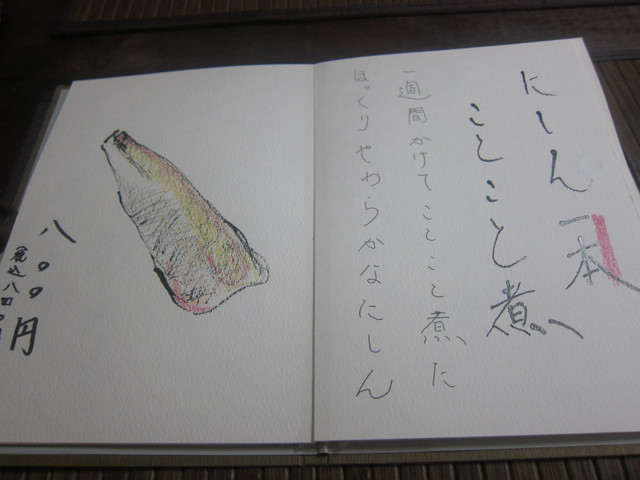 にしん一本
ことこと煮
一週間かけてことこと煮た
ほっくりやわらかなにしん
八〇〇円
(税込八四